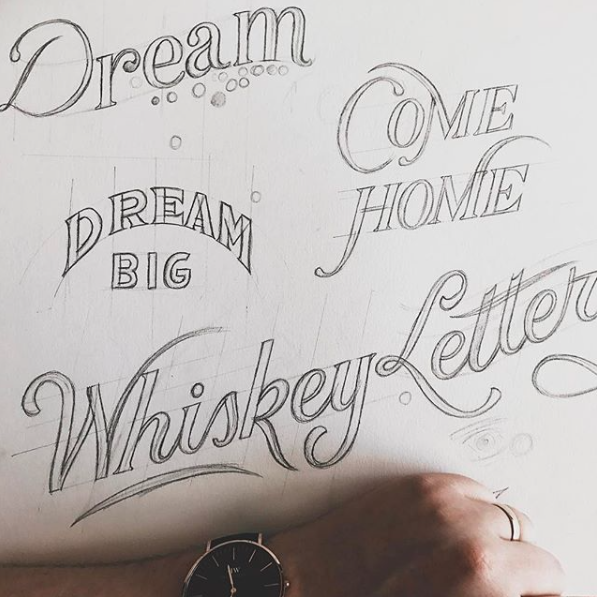 Dream
COME
HOME
DREAM
BIG
Whiskey
Letter